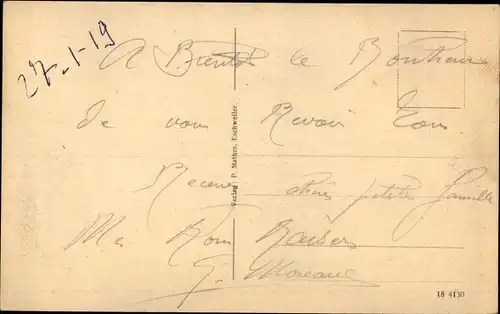 27-1-19
A Bientôt le Bonheur
de vous Revoir tous
Recevez chère petite famille
Mes Bons Baisers
G. Moreau
Verlag: P. Mathes, Eschweiler.
18 4130